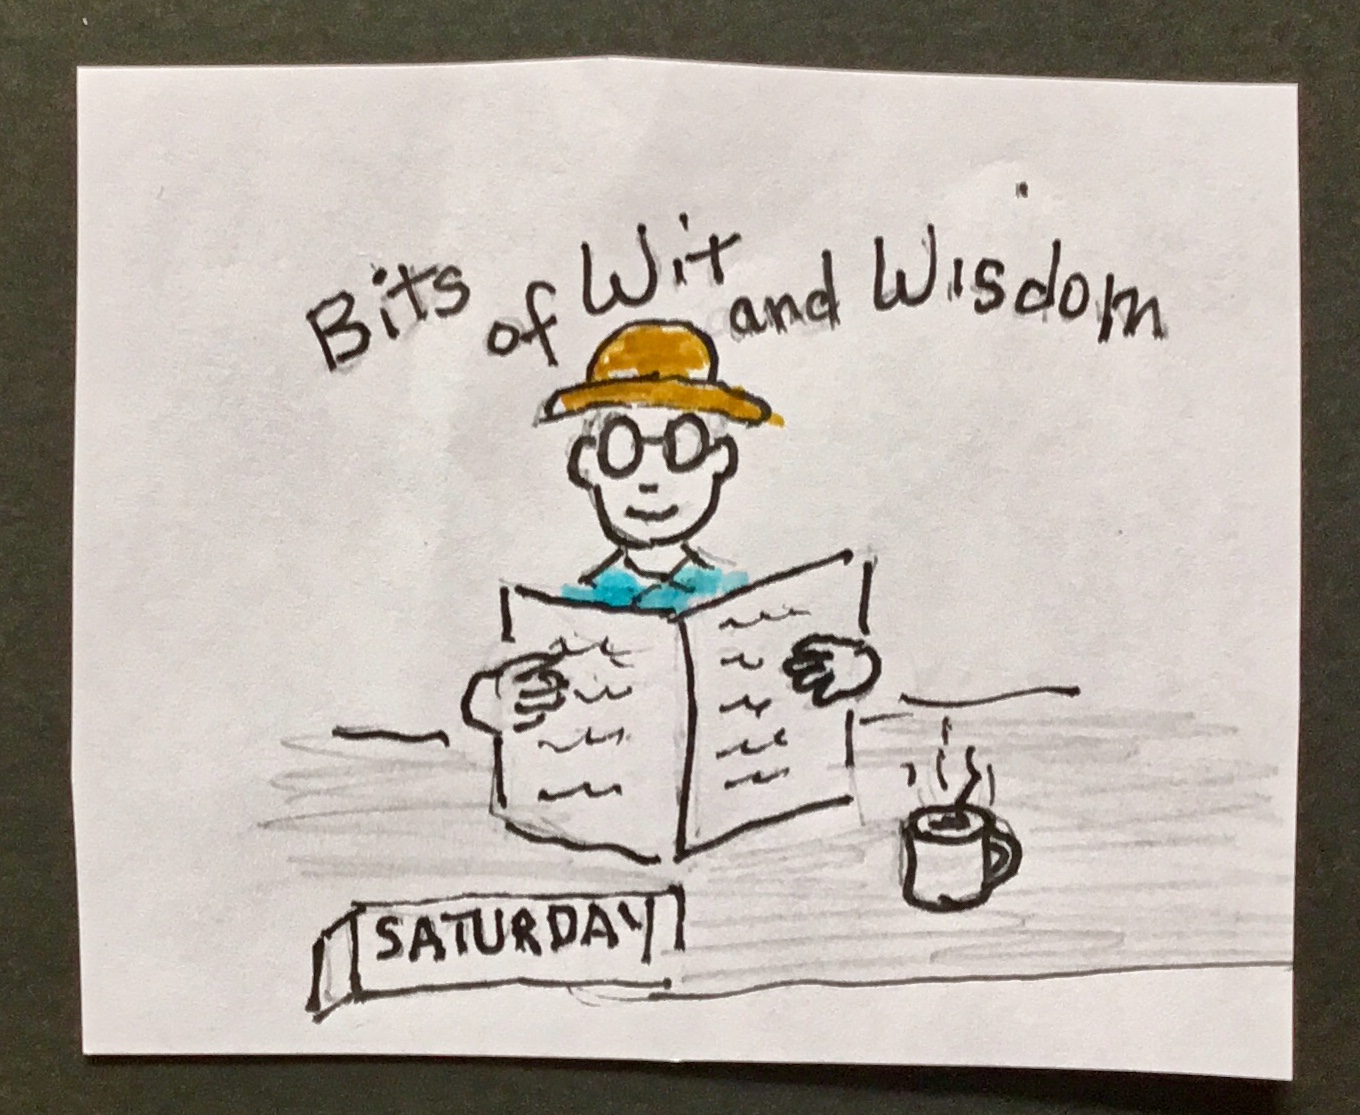 Bits of Wit and Wisdom
SATURDAY